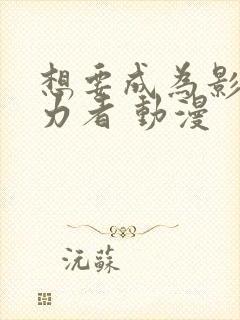 想要成為影
力者 動漫
沅蘇